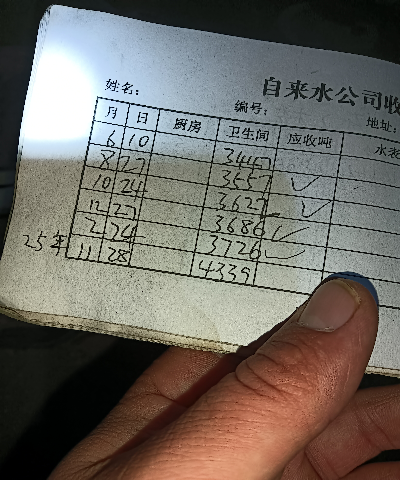 自来水公司收
姓名： 编号： 地址：
月 日 厨房 卫生间 应收吨 水表
6 10 3447
8 27 3557 ✓
10 24 3627 ✓
12 27 3686 ✓
25年 2 24 3726 ✓
11 28 4339